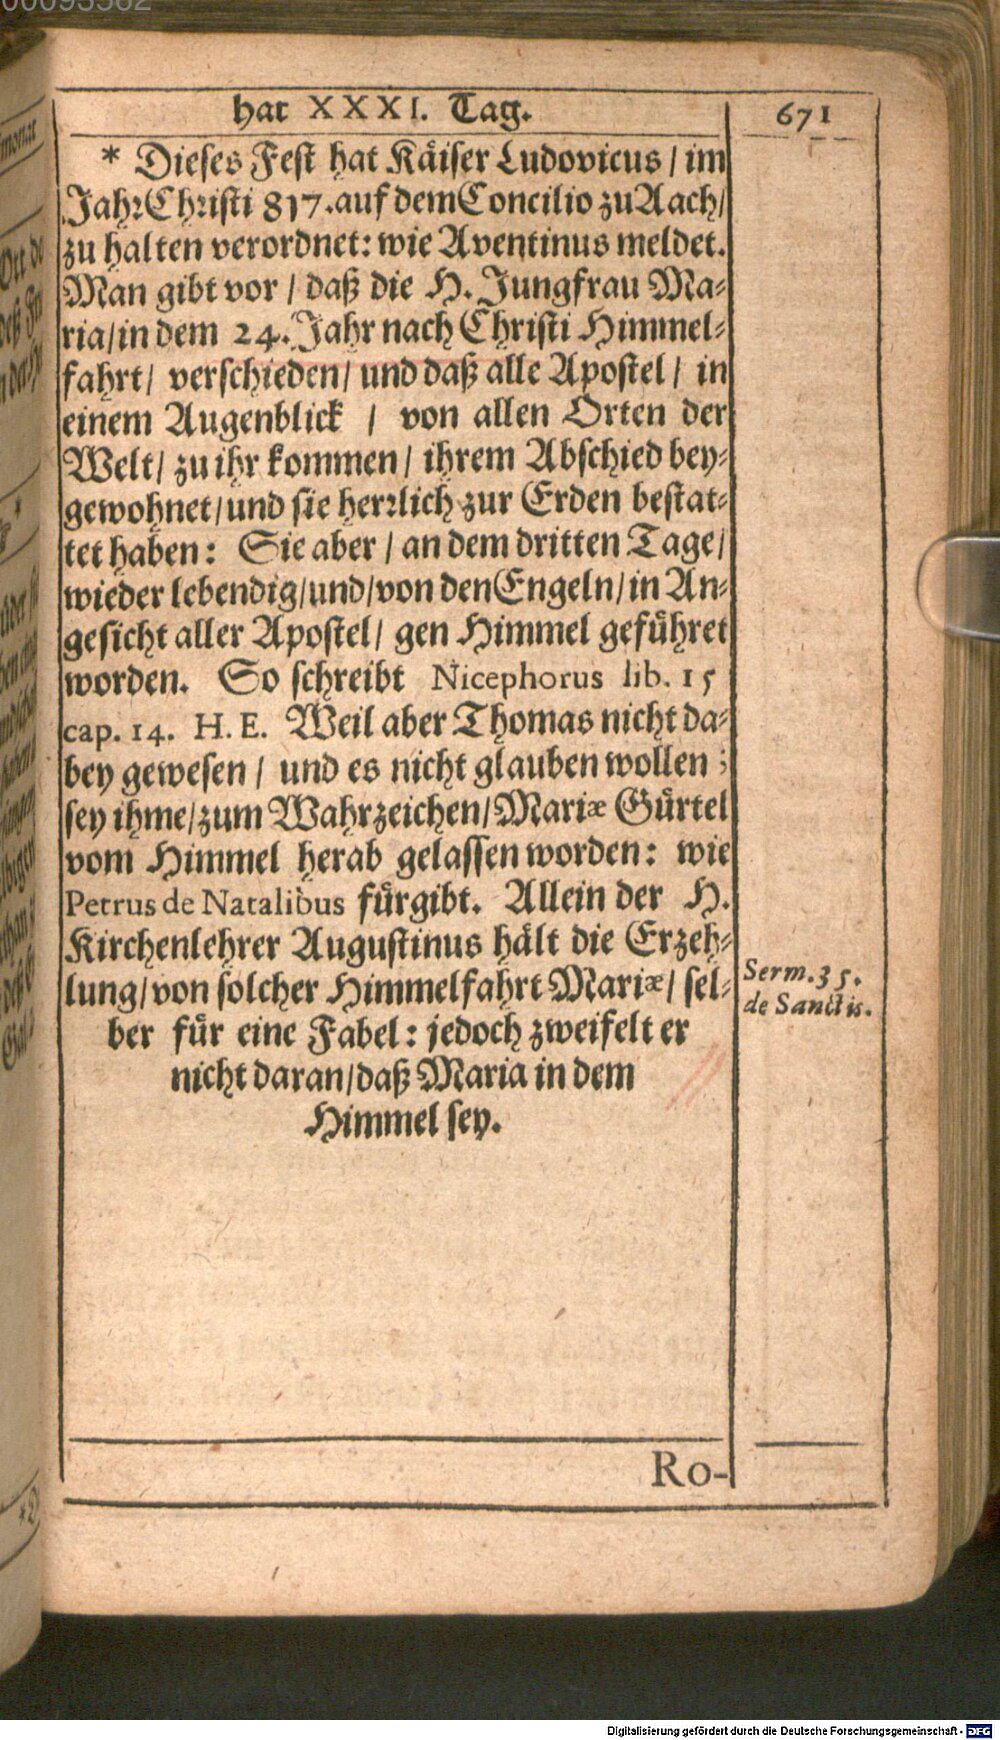 00093582
hat XXXI. Tag.
671
* Dieses Fest hat Käiser Ludovicus / im
Jahr Christi 817. auf dem Concilio zu Aach /
zu halten verordnet: wie Aventinus meldet.
Man gibt vor / daß die H. Jungfrau Ma-
ria / in dem 24. Jahr nach Christi Himmel-
fahrt / verschieden / und daß alle Apostel / in
einem Augenblick / von allen Orten der
Welt / zu ihr kommen / ihrem Abschied bey-
gewohnet / und sie herrlich zur Erden bestat-
tet haben: Sie aber / an dem dritten Tage /
wieder lebendig / und / von den Engeln / in An-
gesicht aller Apostel / gen Himmel geführet
worden. So schreibt Nicephorus lib. 15
cap. 14. H. E. Weil aber Thomas nicht da-
bey gewesen / und es nicht glauben wollen;
sey ihme / zum Wahrzeichen / Mariæ Gürtel
vom Himmel herab gelassen worden: wie
Petrus de Natalibus fürgibt. Allein der H.
Kirchenlehrer Augustinus hält die Erzeh-
lung / von solcher Himmelfahrt Mariæ / sel-
ber für eine Fabel: jedoch zweifelt er
nicht daran / daß Maria in dem
Himmel sey.
Serm. 35.
de Sanctis.
Ro-
Digitalisierung gefördert durch die Deutsche Forschungsgemeinschaft - DFG